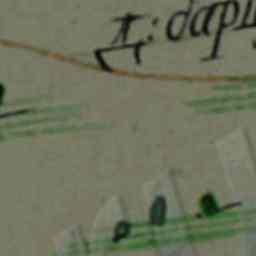 Д: dapi